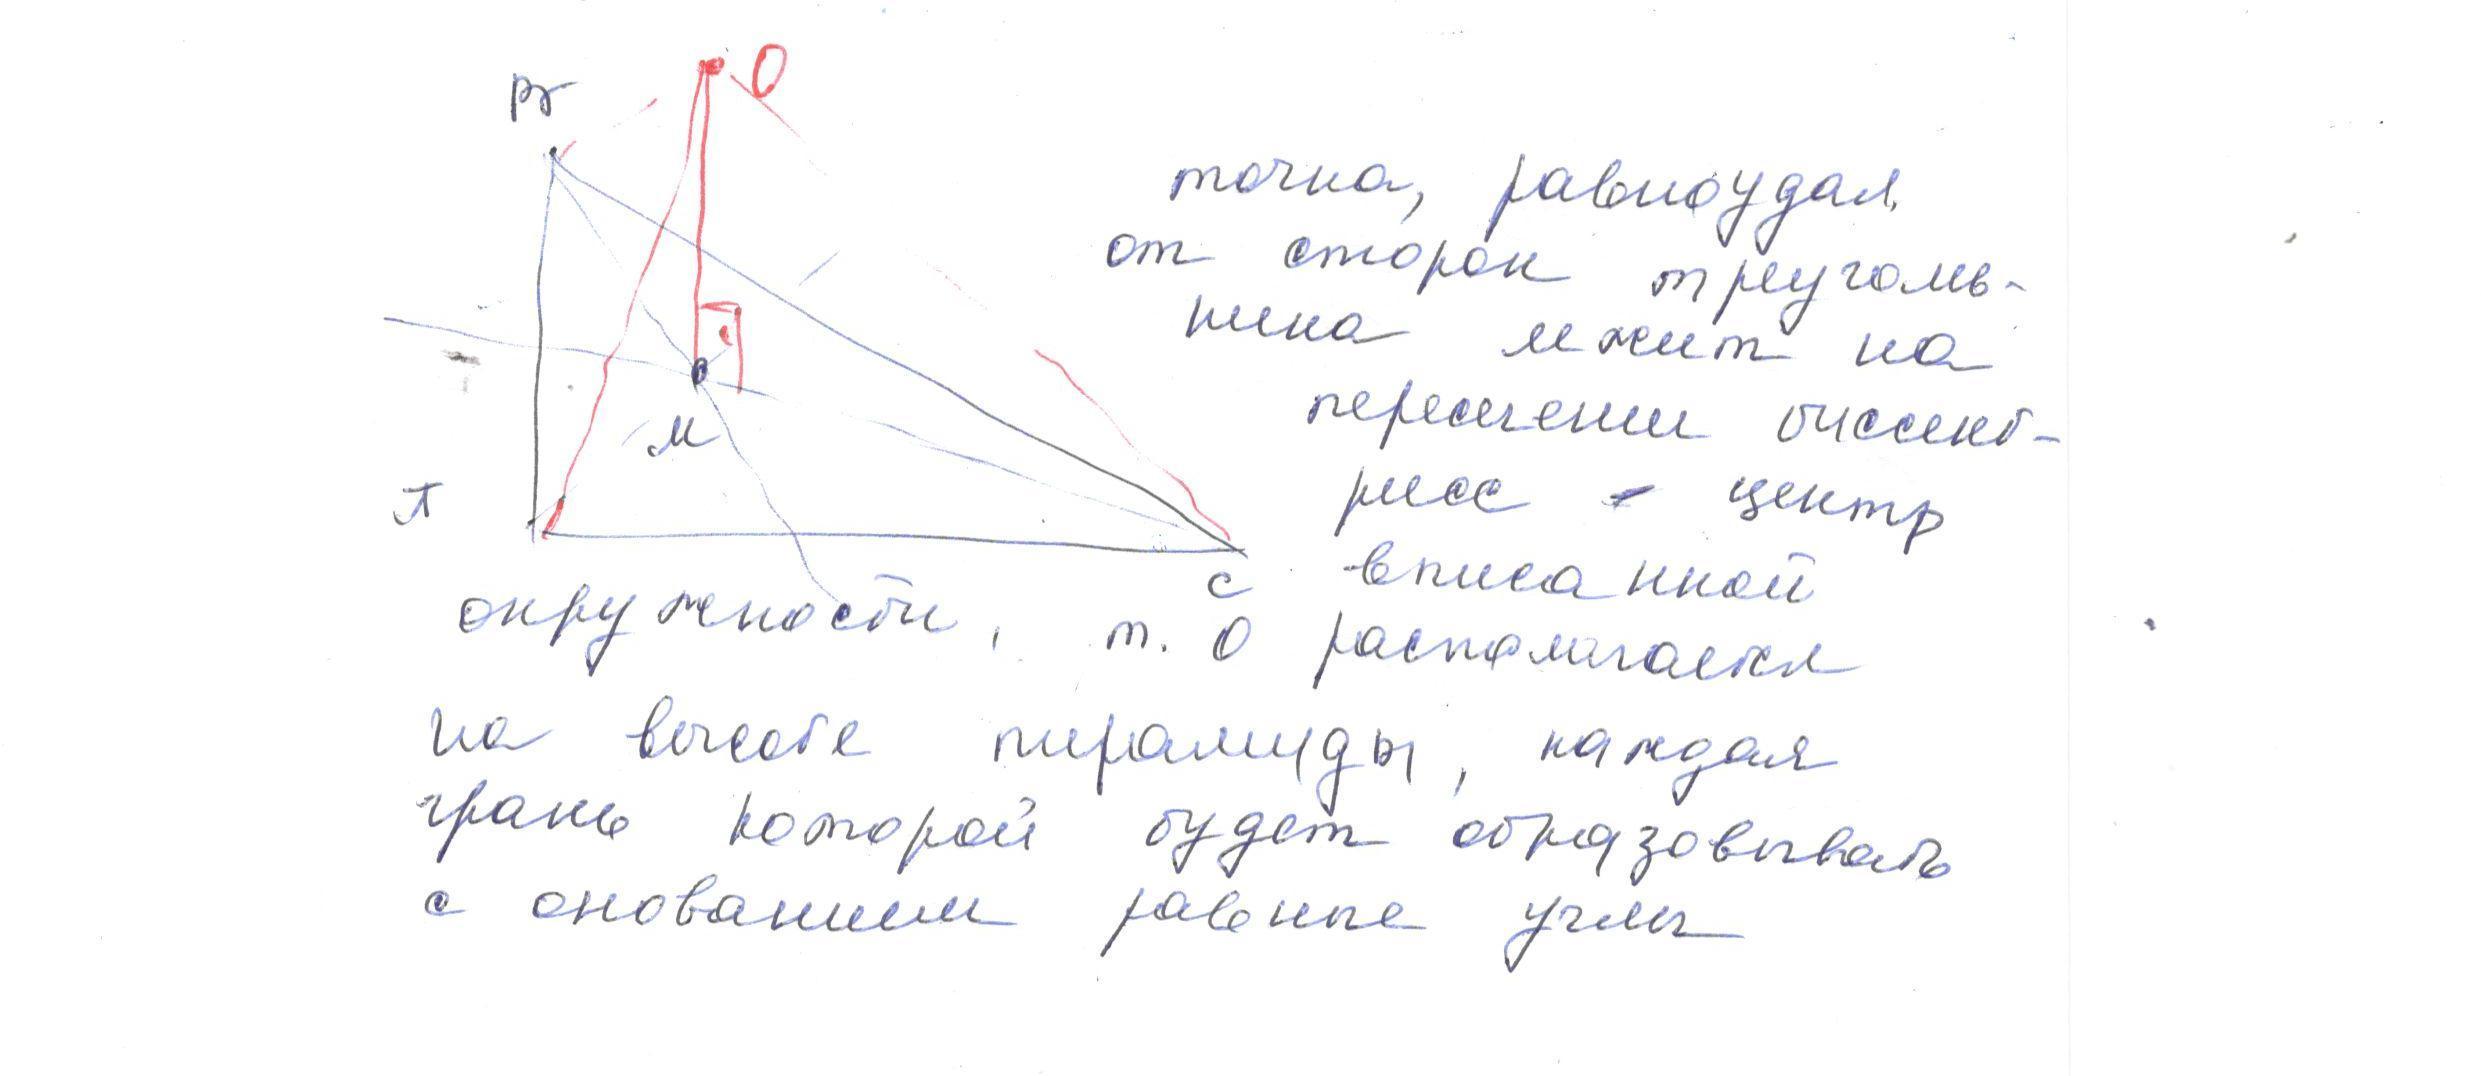 О
М
С
точка, равноудал.
от сторон треуголь-
ника лежит на
пересечении биссект-
рисс - центр
вписанной
окружности, т. О располагается
на высоте пирамиды, каждая
грань которой будет образовывать
с онованием равные углы